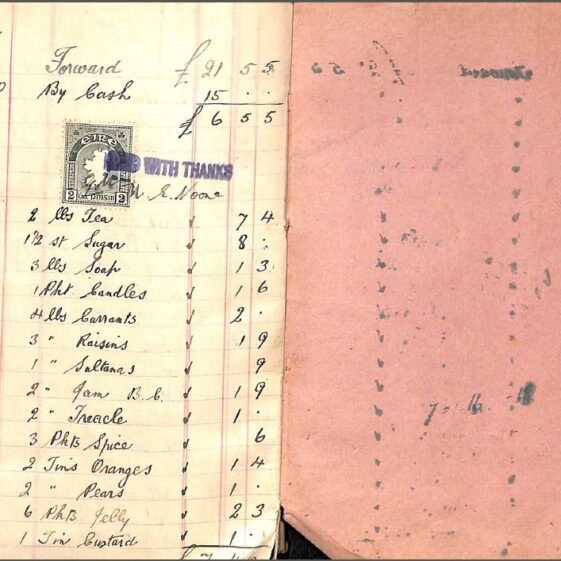 Forward £ 21 5 5
By Cash 15 . .
£ 6 5 5
EIRE
WITH THANKS
2 2
E. Noone
2 lbs Tea 7 4
1½ st Sugar 8 .
3 lbs Soap 1 3
1 Pkt Candles 1 6
4 lbs Currants 2 .
3 " Raisins 1 9
1 " Sultanas 9
2 " Jam B.C. 1 9
2 " Treacle 1 .
3 Pkts Spice 6
2 Tins Oranges 1 4
2 " Pears 1 .
6 Pkts Jelly 2 3
1 Tin Custard 1 .